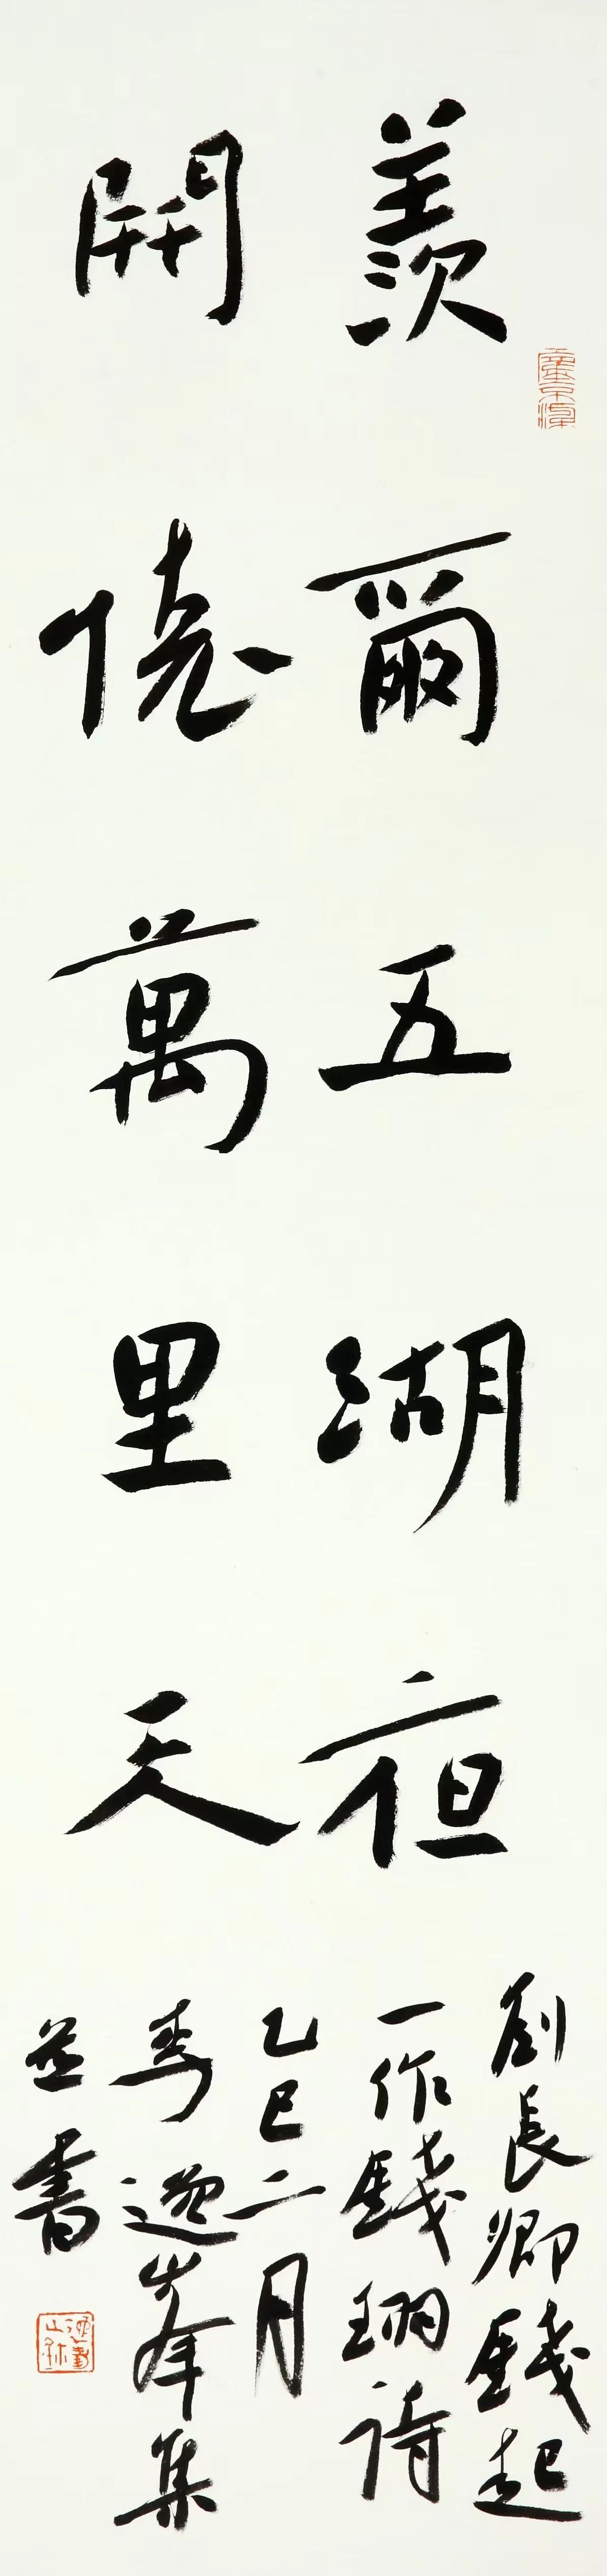 羨爾五湖夜
開萬里天
劉長卿錢起
一作錢珝詩
乙巳二月
李逸峯集
並書